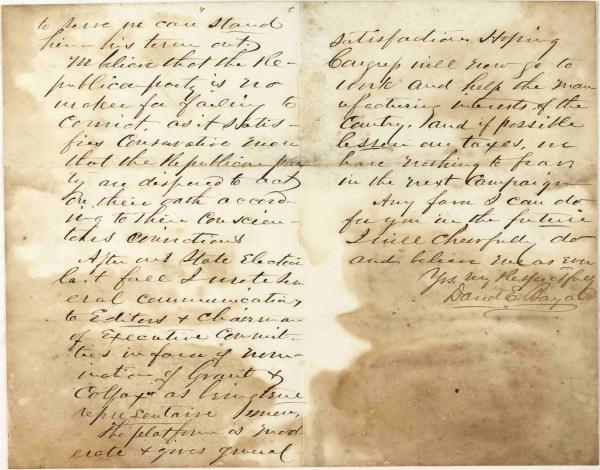 to serve we can "stand"
him – his term out.
We believe that the Re-
publican party is no
weaker for failing to
convict, as it satis-
fies Conservative men
that the Republican par-
ty are disposed to act
on their oath accord-
ing to their conscien-
tious convictions
After our State Election
last fall I wrote sev-
eral communications
to Editors & Chairman
of Executive Commit-
ties in favor of nomi-
nation of Grant &
Colfax as being true
representative men.
The platform is mod-
erate & gives general
satisfaction. Hoping
Congress will now go to
work and help the man-
ufacturing interests of the
Country, and if possible
lessen our taxes, we
have nothing to fear
in the next campaign
Any favor I can do
for you in the future
I will cheerfully do
and believe me as ever
Yrs. very Respectfully
David E.